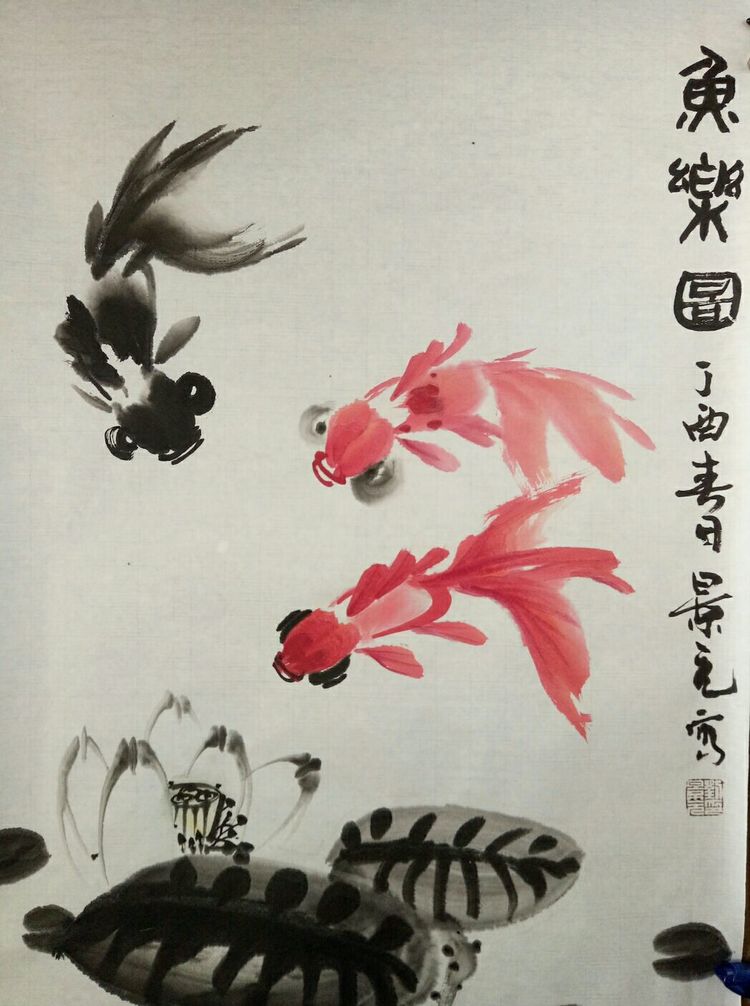 魚樂圖
丁酉春日景元寫